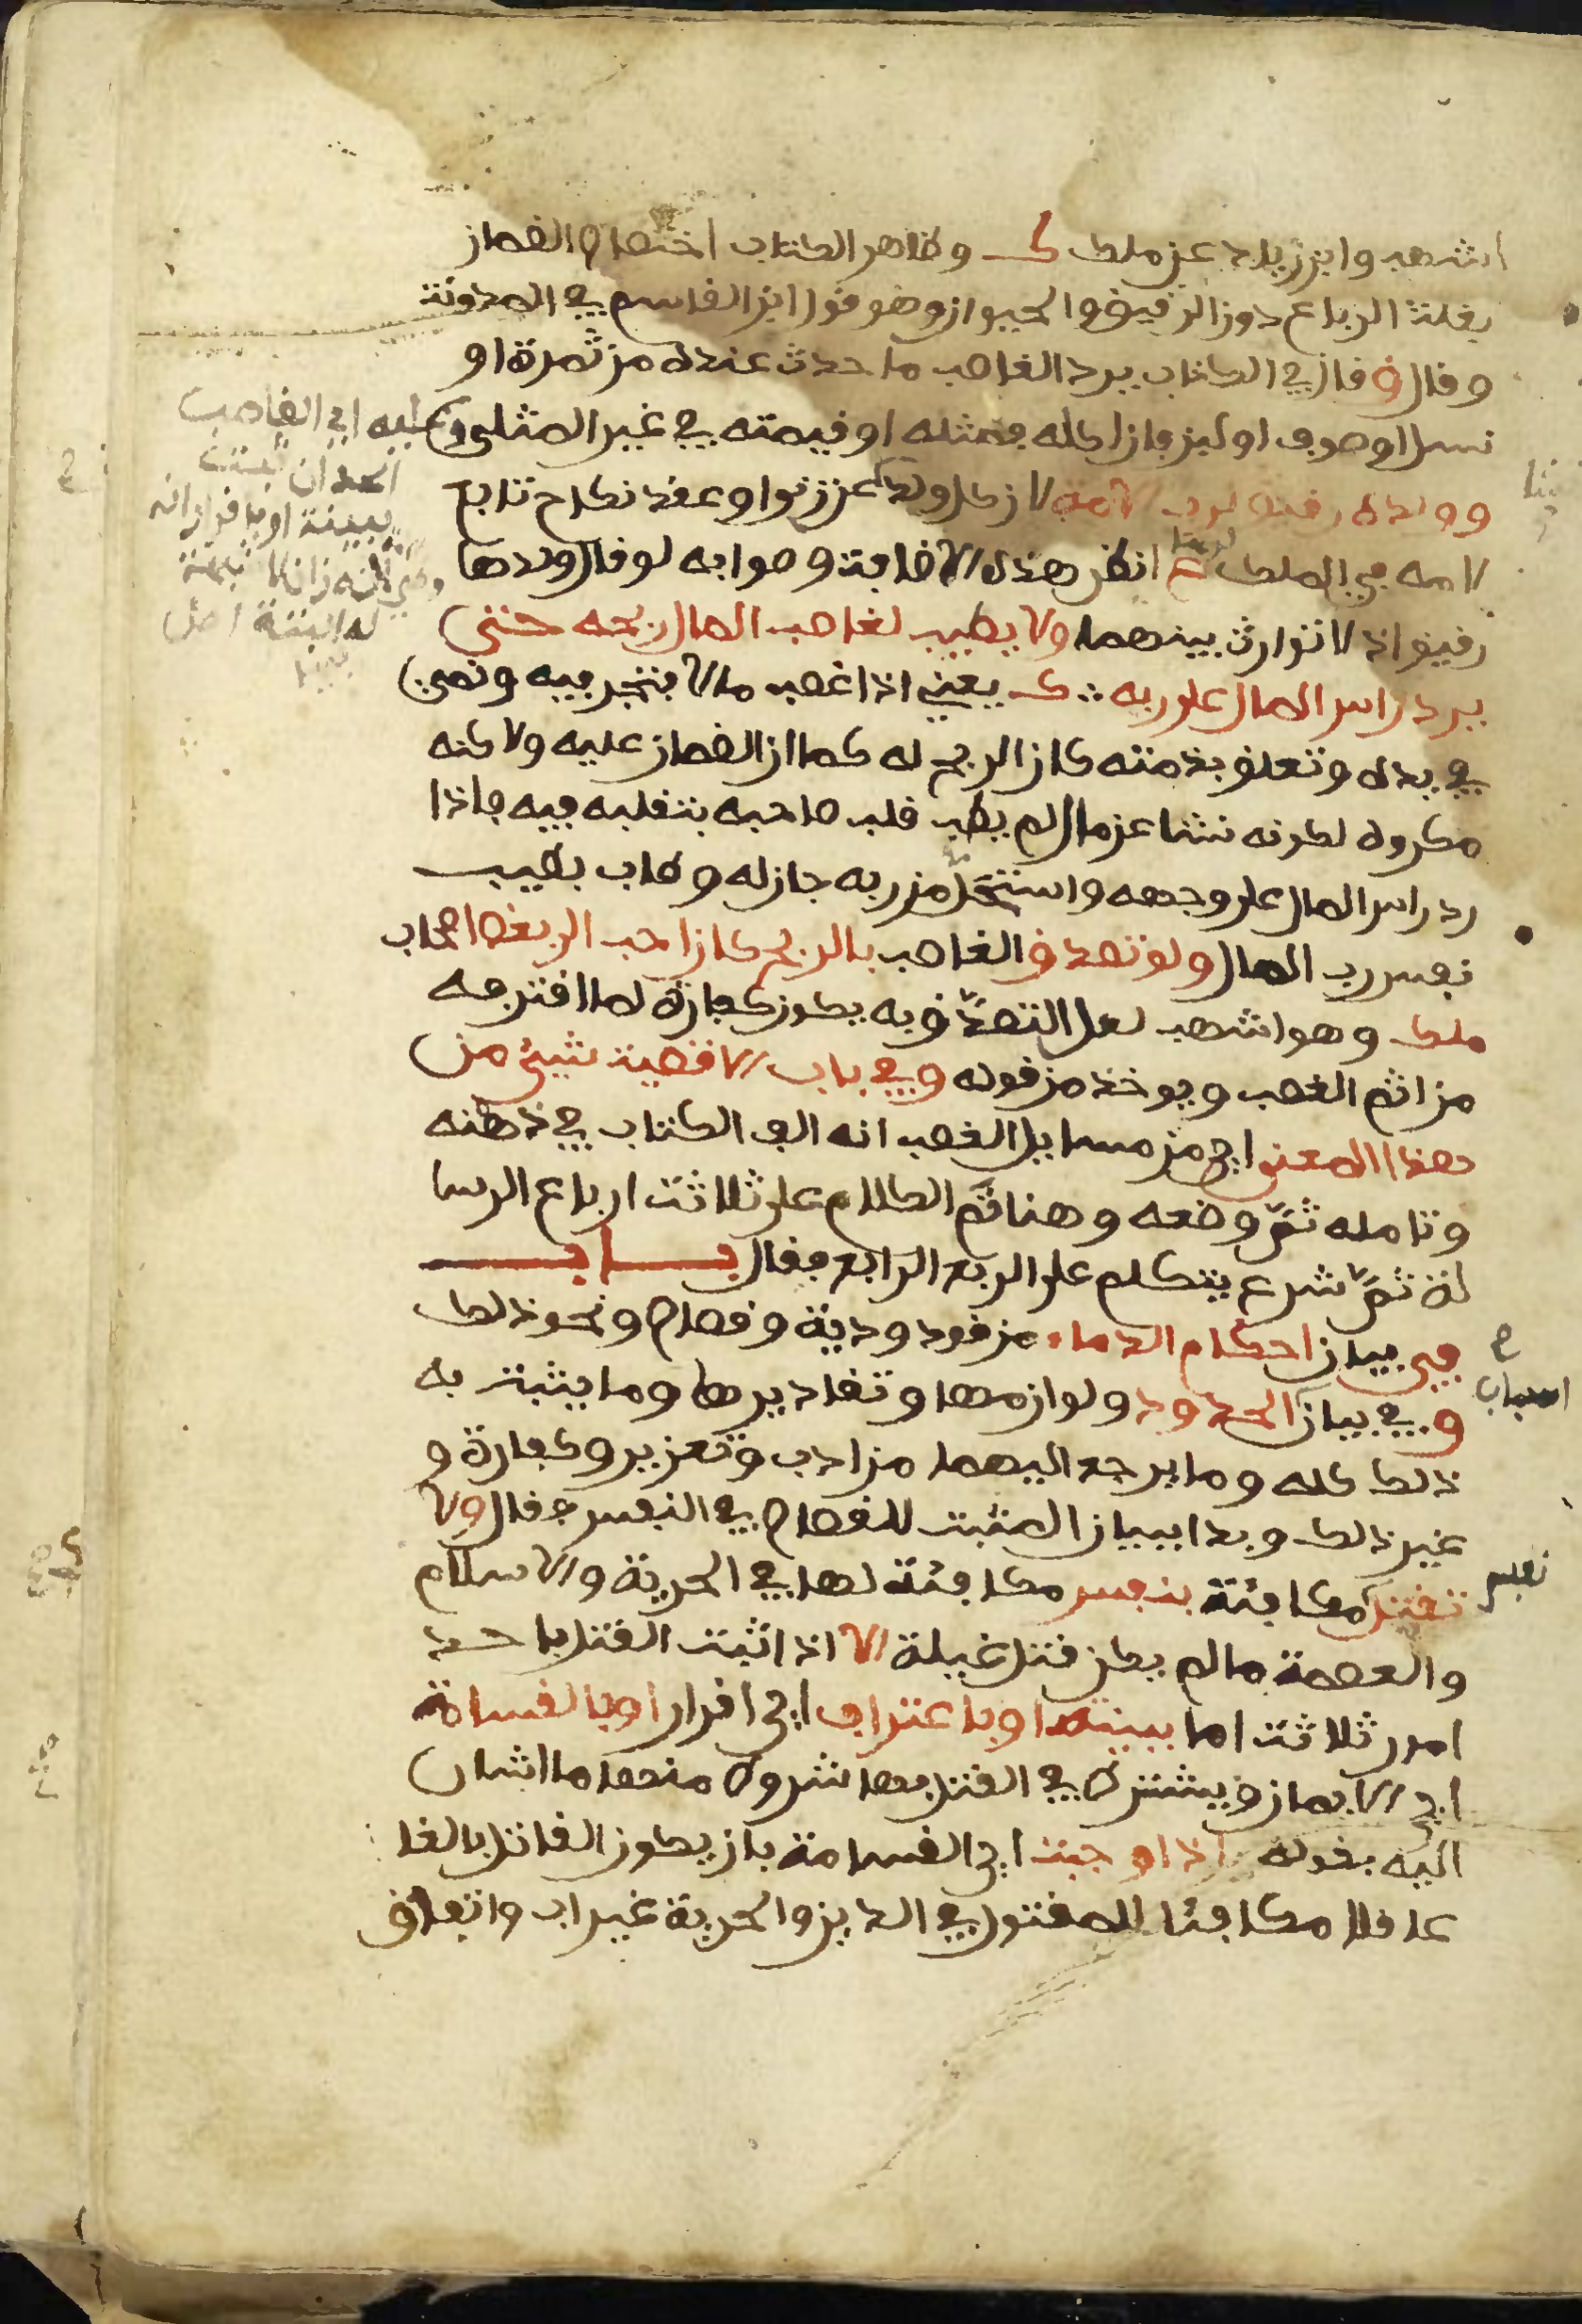 اشهب وابن زياد عن ملك ك وظاهر الكتاب اختصاص الضمان
بغلة الرباع دون الرقيق والحيوان وهو قول ابن القاسم في المدونة
وقال ق قال في الكتاب يرد الغاصب ما حدث عنده من ثمرة او
نسل او صوف او لبن فان اكله فمثله او قيمته في غير المثلي وعليه اي الغاصب
الحد ان
ببينة او باقرار انه
له البينة
وولده رقيق لرب الامة لان كل ولد عن زنوا وعقد نكاح تابع
لامه في الملك انظر هذه الاضافة وصوابه لو قال وولدها
رقيق اذ لا توارث بينهما ولا يطيب لغاصب المال ربحه حتى
يرد راس المال على ربه ك يعني اذا غصب مالا فتجر فيه ونض
في يده وتعلق بذمته كان الربح له كما ان الضمان عليه ولاكنه
مكروه لكونه نشا عن مال لم يطب قلب صاحبه بتقلبه فيه فاذا
رد راس المال على وجهه واستحل من ربه جاز له وطاب بطيب
نفس رب المال ولو تصدق الغاصب بالربح كان احب الى بعض اصحاب
ملك وهو اشهب لعل التصدق به يكون كفارة لما اقترفه
من اثم الغصب ويوخذ من قوله وفي باب الاقضية شيئ من
هذا المعنى اي من مسايل الغصب انه الف الكتاب في ذهنه
وتامله ثم وضعه وهنا تم الكلام على ثلاثة ارباع الرسا
لة ثم شرع يتكلم على الربع الرابع فقال باب
في بيان احكام الدماء من قود ودية وقصاص ونحو ذلك
و في بيان الحدود ولوازمها وتقاديرها وما يثبت به
اسباب
ذلك كله وما يرجع اليهما من ادب وتعزير وكفارة و
غير ذلك وبدا ببيان المثبت للقصاص في النفس فقال ولا
تقتل مكافئة بنفس مكافئة لها في الحرية والاسلام
نفس
والعصمة مالم يكن قتل غيلة الا اذا ثبت القتل باحد
امور ثلاثة اما ببينة او باعتراف اي اقرار او بالقسامة
اي الايمان ويشترط في القتل بها شروط منها ما اشار
اليه بقوله اذا وجبت اي القسامة بان يكون القاتل بالغا
عاقلا مكافئا للمقتول في الدين والحرية غير اب واتفاق